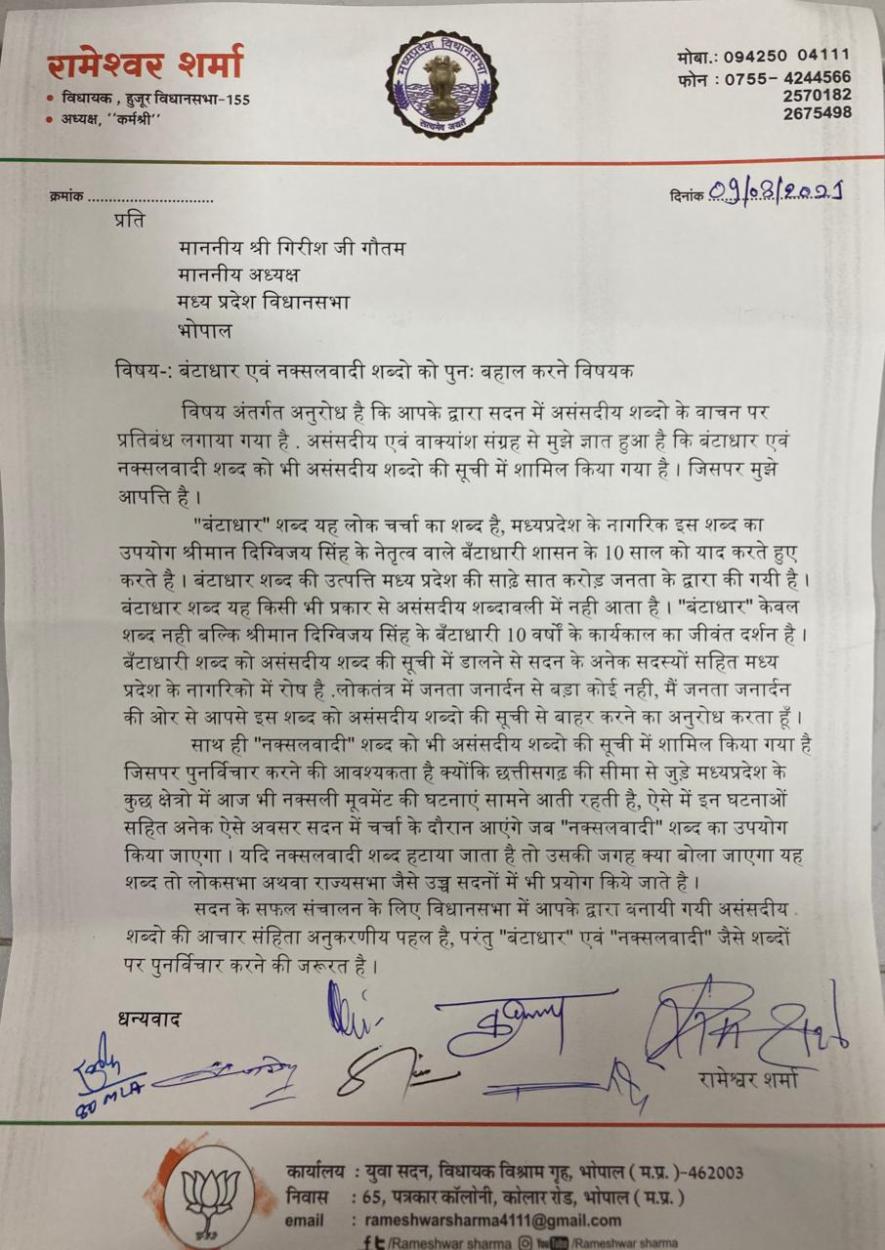 रामेश्वर शर्मा
• विधायक , हुजूर विधानसभा-155
• अध्यक्ष, ''कर्मश्री''
मध्यप्रदेश विधानसभा
सत्यमेव जयते
मोबा.: 094250 04111
फोन : 0755- 4244566
2570182
2675498
क्रमांक ..............................
दिनांक 09/08/2021
प्रति
माननीय श्री गिरीश जी गौतम
माननीय अध्यक्ष
मध्य प्रदेश विधानसभा
भोपाल
विषय-: बंटाधार एवं नक्सलवादी शब्दो को पुनः बहाल करने विषयक
विषय अंतर्गत अनुरोध है कि आपके द्वारा सदन में असंसदीय शब्दो के वाचन पर
प्रतिबंध लगाया गया है . असंसदीय एवं वाक्यांश संग्रह से मुझे ज्ञात हुआ है कि बंटाधार एवं
नक्सलवादी शब्द को भी असंसदीय शब्दो की सूची में शामिल किया गया है । जिसपर मुझे
आपत्ति है ।
"बंटाधार" शब्द यह लोक चर्चा का शब्द है, मध्यप्रदेश के नागरिक इस शब्द का
उपयोग श्रीमान दिग्विजय सिंह के नेतृत्व वाले बँटाधारी शासन के 10 साल को याद करते हुए
करते है । बंटाधार शब्द की उत्पत्ति मध्य प्रदेश की साढ़े सात करोड़ जनता के द्वारा की गयी है ।
बंटाधार शब्द यह किसी भी प्रकार से असंसदीय शब्दावली में नही आता है । "बंटाधार" केवल
शब्द नही बल्कि श्रीमान दिग्विजय सिंह के बँटाधारी 10 वर्षों के कार्यकाल का जीवंत दर्शन है ।
बँटाधारी शब्द को असंसदीय शब्द की सूची में डालने से सदन के अनेक सदस्यों सहित मध्य
प्रदेश के नागरिको में रोष है .लोकतंत्र में जनता जनार्दन से बड़ा कोई नही, मैं जनता जनार्दन
की ओर से आपसे इस शब्द को असंसदीय शब्दो की सूची से बाहर करने का अनुरोध करता हूँ ।
साथ ही "नक्सलवादी" शब्द को भी असंसदीय शब्दो की सूची में शामिल किया गया है
जिसपर पुनर्विचार करने की आवश्यकता है क्योंकि छत्तीसगढ़ की सीमा से जुड़े मध्यप्रदेश के
कुछ क्षेत्रो में आज भी नक्सली मूवमेंट की घटनाएं सामने आती रहती है, ऐसे में इन घटनाओं
सहित अनेक ऐसे अवसर सदन में चर्चा के दौरान आएंगे जब "नक्सलवादी" शब्द का उपयोग
किया जाएगा । यदि नक्सलवादी शब्द हटाया जाता है तो उसकी जगह क्या बोला जाएगा यह
शब्द तो लोकसभा अथवा राज्यसभा जैसे उच्च सदनों में भी प्रयोग किये जाते है ।
सदन के सफल संचालन के लिए विधानसभा में आपके द्वारा बनायी गयी असंसदीय
शब्दो की आचार संहिता अनुकरणीय पहल है, परंतु "बंटाधार" एवं "नक्सलवादी" जैसे शब्दों
पर पुनर्विचार करने की जरूरत है ।
धन्यवाद
80 MLA
रामेश्वर शर्मा
कार्यालय : युवा सदन, विधायक विश्राम गृह, भोपाल ( म.प्र. )-462003
निवास : 65, पत्रकार कॉलोनी, कोलार रोड, भोपाल ( म.प्र. )
email : rameshwarsharma4111@gmail.com
/Rameshwar sharma YouTube /Rameshwar sharma